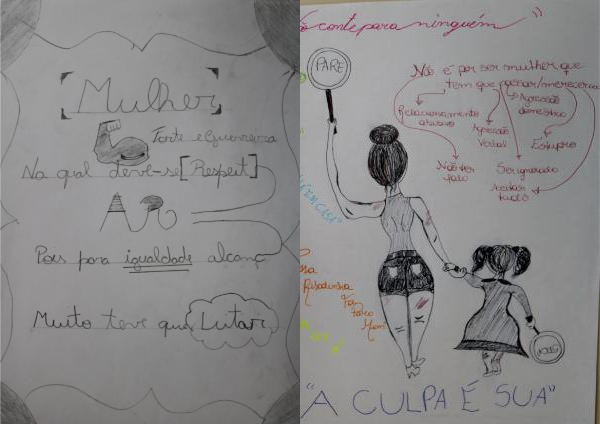 [Mulher]
Forte e Guerreira
Na qual deve-se [Respeit]
AR
Pois para igualdade alcanç
Muito teve que Lutar
conte para ninguém"
PARE
Não é por ser mulher que
tem que passar/merecer
Relacionamento
abusivo
Agressão
Verbal
Agressão
doméstica
Estupro
Não ter
Ser ignorada
tudo
EM CASA"
Risadinha
"A CULPA É SUA"